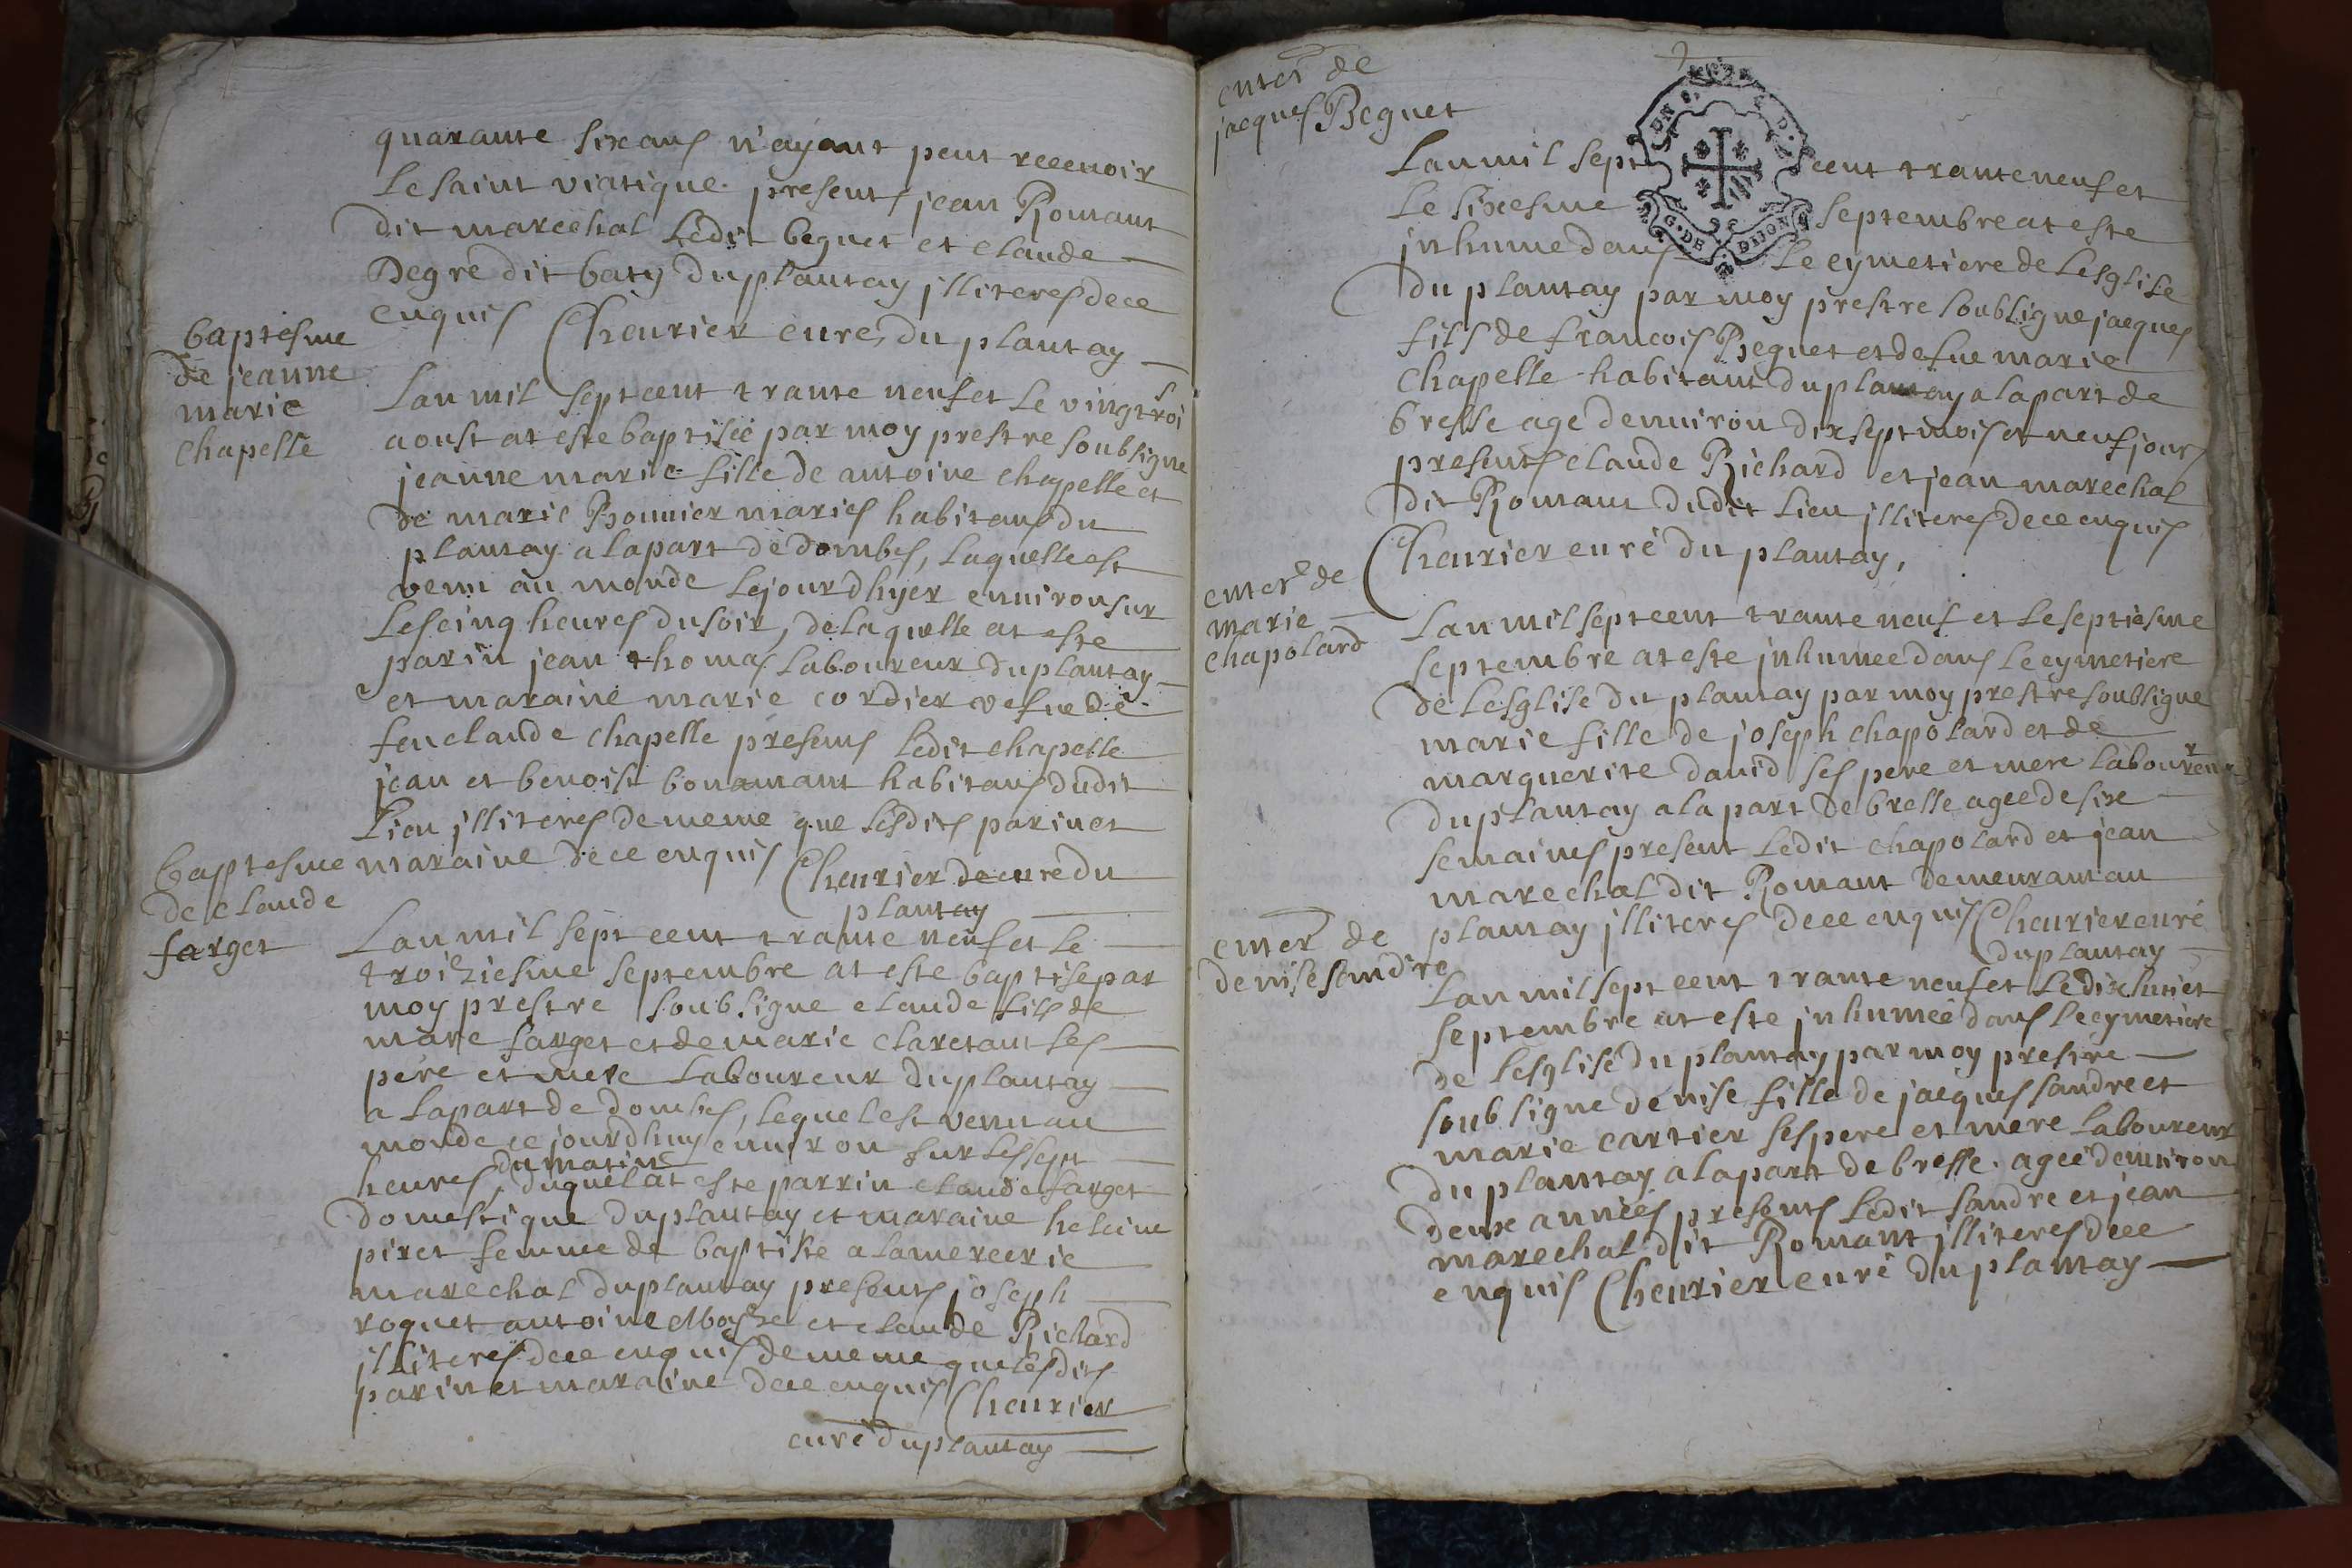 quarante six ans n'ayant peut recevoir
Le saint viatique. presents jean Romant
dit marechal Ledit beguet et claude
Degre dit baty du plantay jlliteres dece
enquis Cheurier curé, du plantay
baptesme
de jeanne
marie
chapelle
Lan mil sept cent trante neuf et Le vingt troi
aoust at este baptisée par moy prestre soubsigne
jeanne marie fille de antoine chapelle et
de marie Bonnier mariés habitans du
plantay a la part de dombes, Laquelle est
venu au monde Le jourdhyer environ sur
Les cinq heures du soir, de laquelle at este
parin jean thomas Laboureur du plantay
et maraine marie cordier vefue de
feu claude chapelle presens Ledit chapelle
jean et benoist bonamant habitans dudit
Lieu jlliteres de meme que Lesdits parin et
maraine dece enquis Cheurier curé du
plantay
baptesme
de claude
farget
Lan mil sept cent trante neuf et Le
troiziesme septembre at este baptise par
moy prestre soubsigne claude fils de
marc farget et de marie claretant ses
pere et mere Laboureur du plantay
a la part de dombes, Lequel est venu au
monde ce jourdhuy environ sur Les sept
heures, du matin duquel at este parrin claude farget
domestique du plantay et maraine heleine
piret femme de baptiste alamercerie
marechal du plantay presents joseph
roquet antoine et claude Richard
jlliteres dece enquis de meme que Lesdits
parin et maraine dece enquis Cheurier
curé du plantay
enter de
jacques Beguet
Lan mil sept cent trante neuf et
Le sixiesme septembre at este
jnhume dans Le cymetiere de Lesglise
du plantay par moy prestre soubsigne jacques
fils de francois Beguet et de fue marie
chapelle habitant du plantay a la part de
bresse age denviron dix sept mois et neuf jour
presents claude Richard et jean marechal
dit Romant dudit Lieu jlliteres dece enquis
Cheurier curé du plantay,
DN S. D.
G. DE DIJON
enter de
marie
chapolard
Lan mil sept cent trante neuf et Le septiesme
septembre at este jnhumee dans Le cymetiere
de Lesglise du plantay par moy prestre soubsigne
marie fille de joseph chapolard et de
marguerite david ses pere et mere Laboureur
du plantay a la part de bresse agee de six
semaines present Ledit chapolard et jean
marechal dit Romant demeurant au
plantay jlliteres dece enquis Cheurier curé
du plantay
enter de
denise sandre
Lan mil sept cent trante neuf et Le dix huict
septembre at este jnhumée dans Le cymetiere
de Lesglise du plantay par moy prestre
soubsigne denise fille de jacques sandre et
marie cartier ses pere et mere Laboureur
du plantay a la part de bresse. agee denviron
deux années presents Ledit sandre et jean
marechal dit Romant jlliteres dece
enquis Cheurier curé du plantay